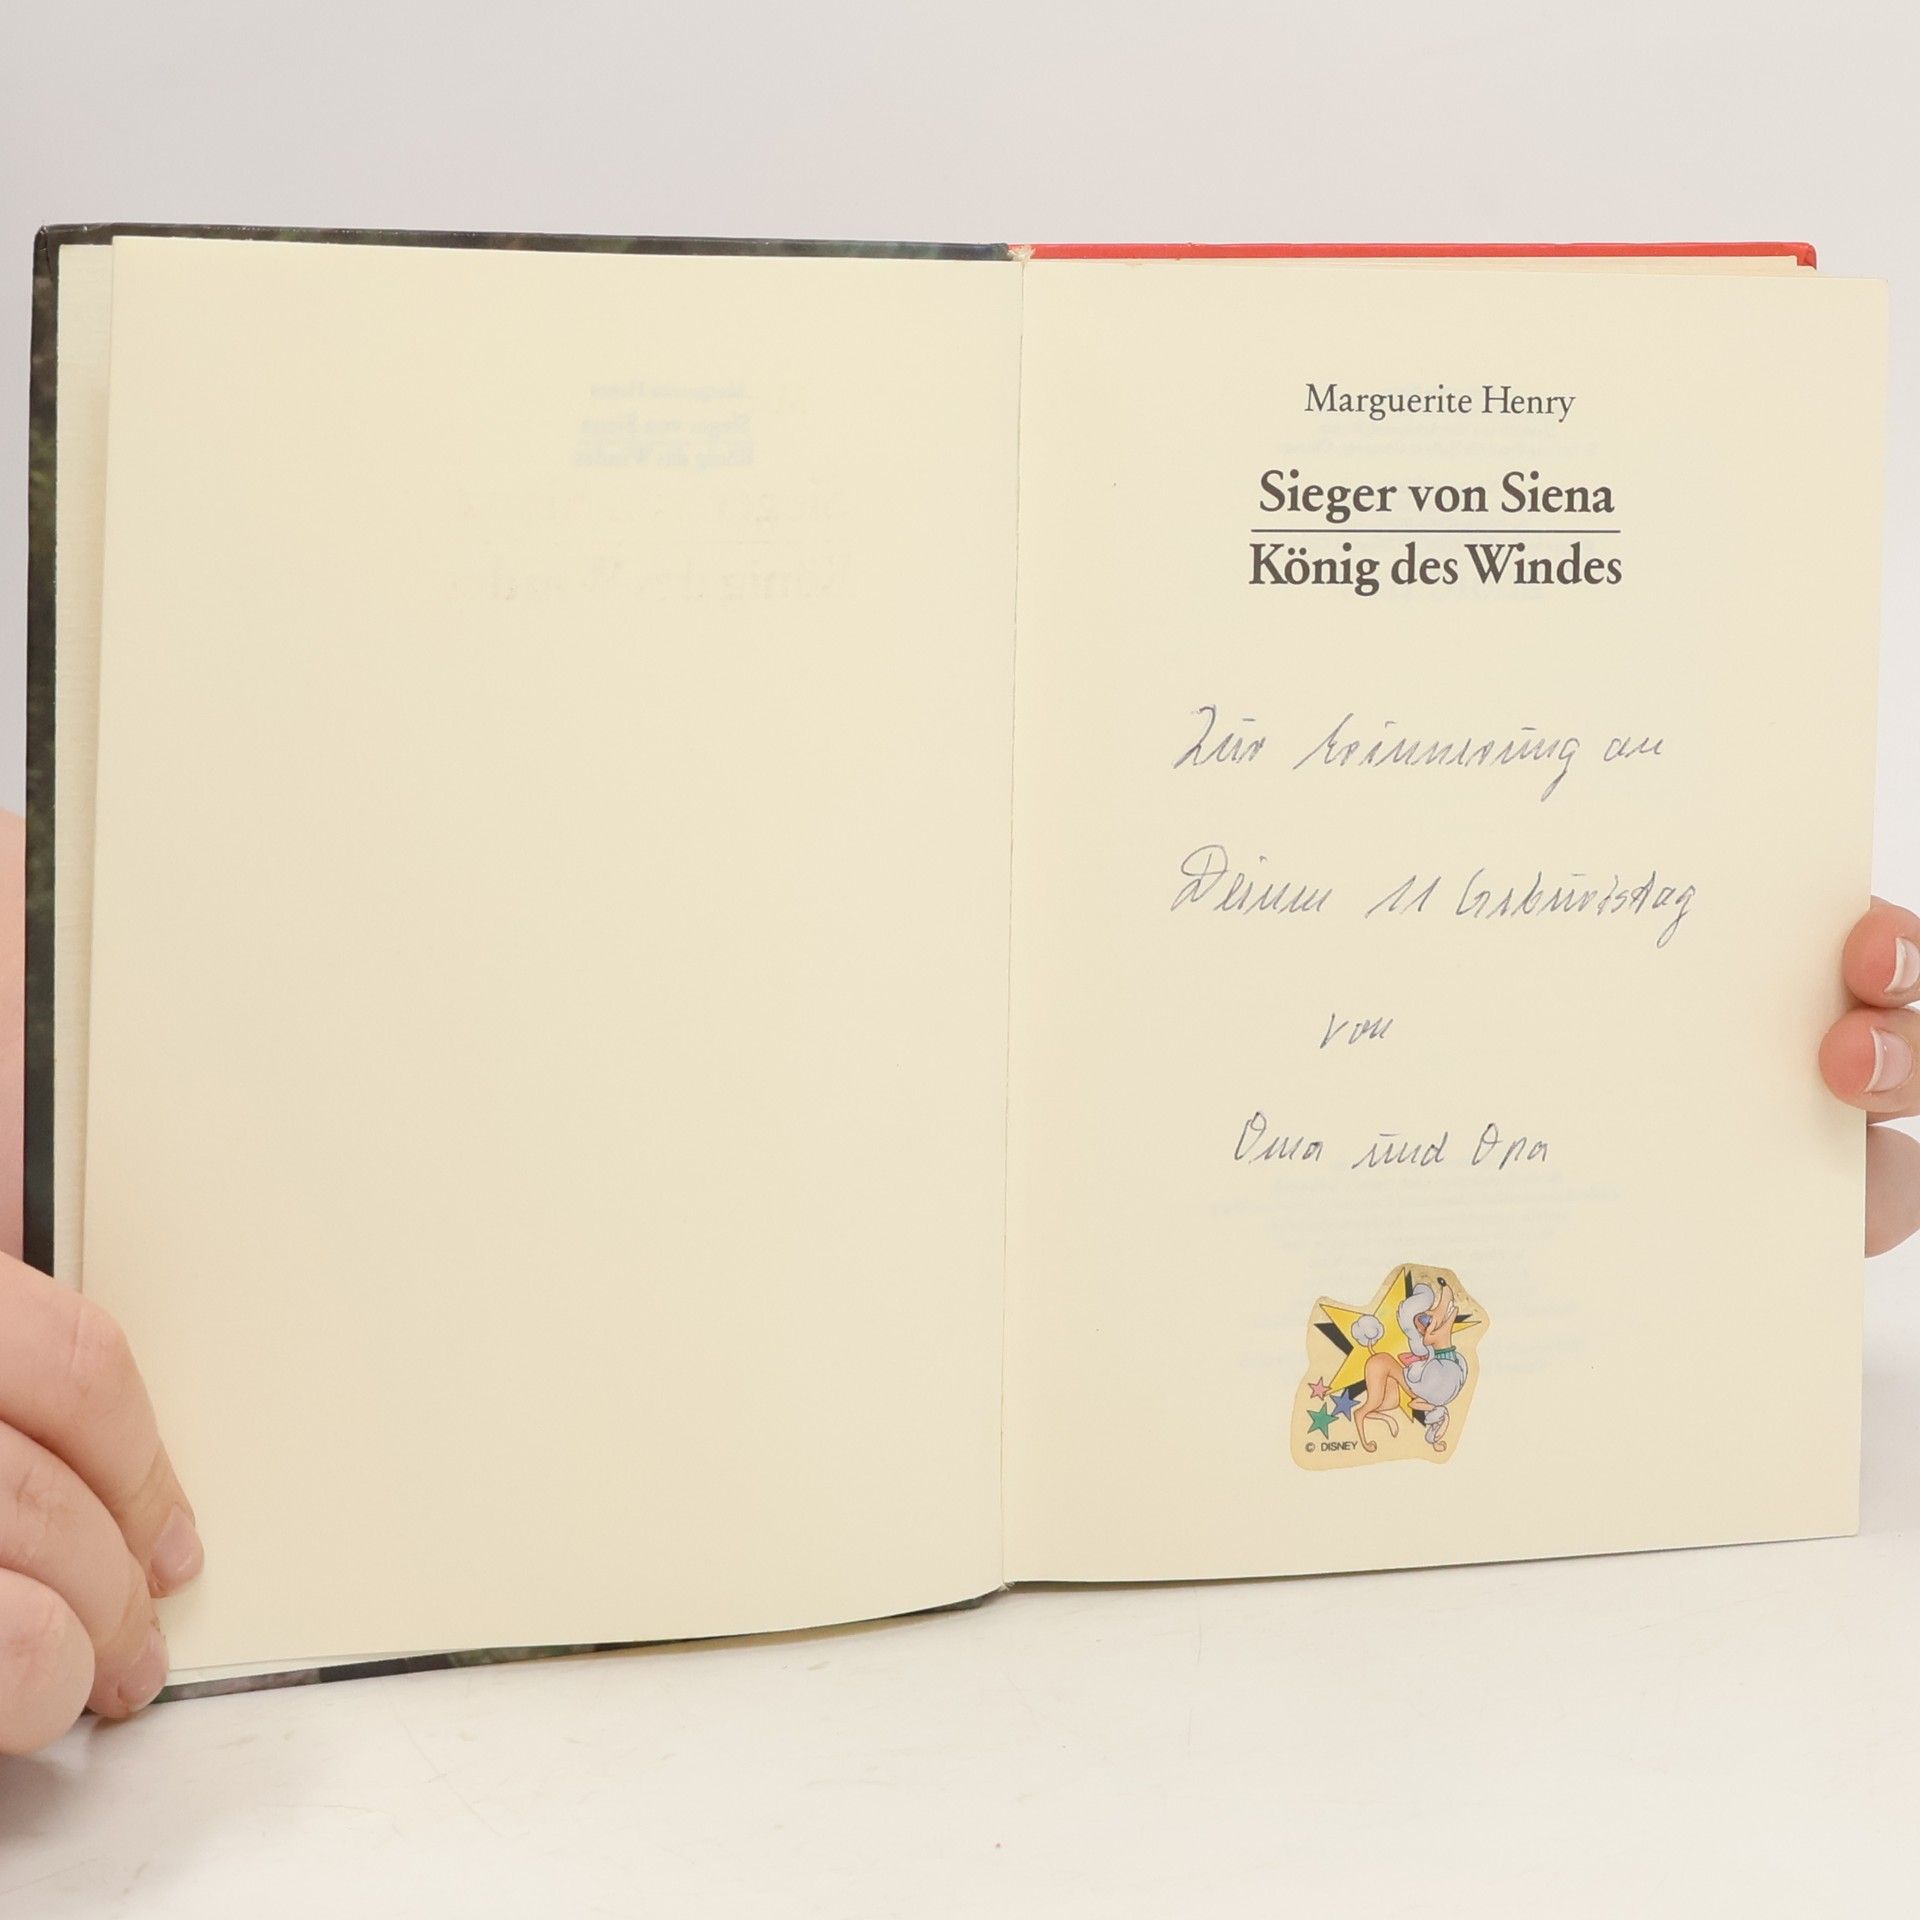 Marguerite Henry
Sieger von Siena
König des Windes
Zur Erinnerung an
Deinen 11 Geburtstag
von
Oma und Opa
© DISNEY